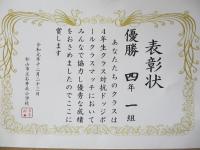 表彰状
優勝 四年 一組
あなたたちのクラスは
4年生クラス対抗ドッジボ
ールクラスマッチにおいて
みんなで協力し優秀な成績
をおさめましたのでここに
賞します
令和元年十二月二十三日